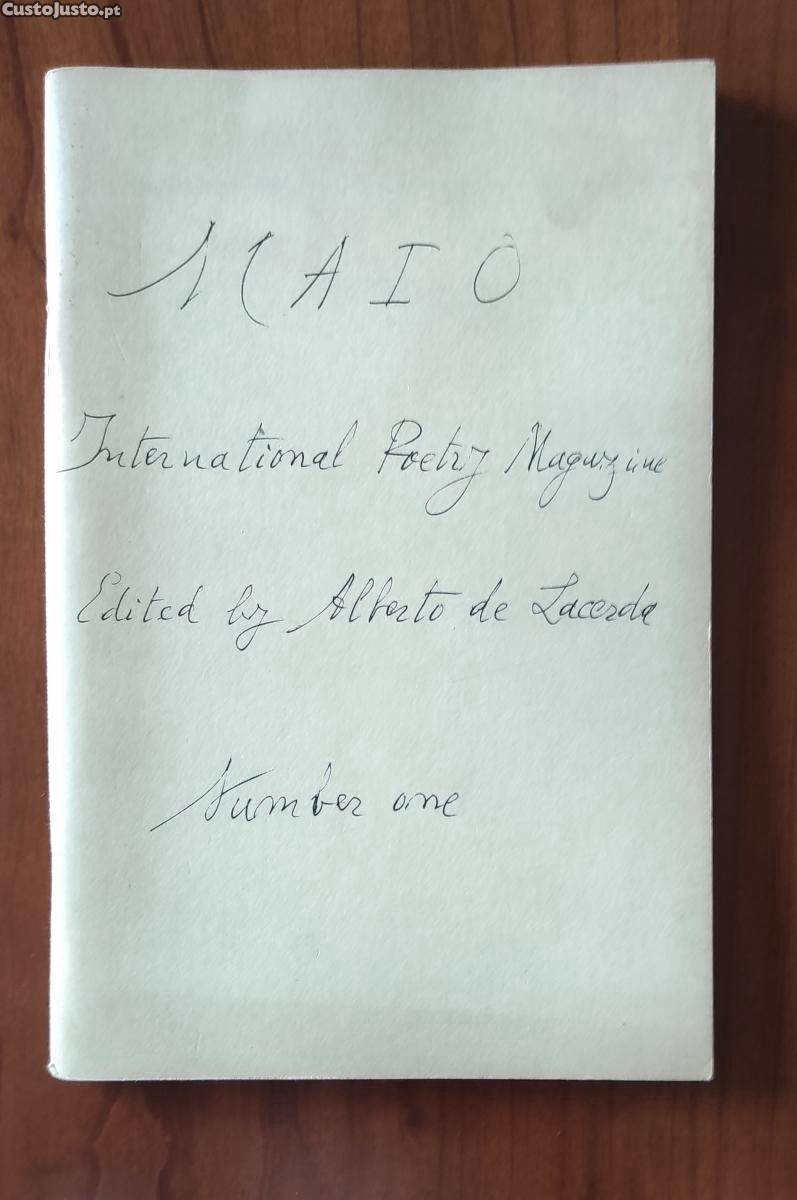 CustoJusto.pt
MAIO
International Poetry Magazine
Edited by Alberto de Lacerda
Number one